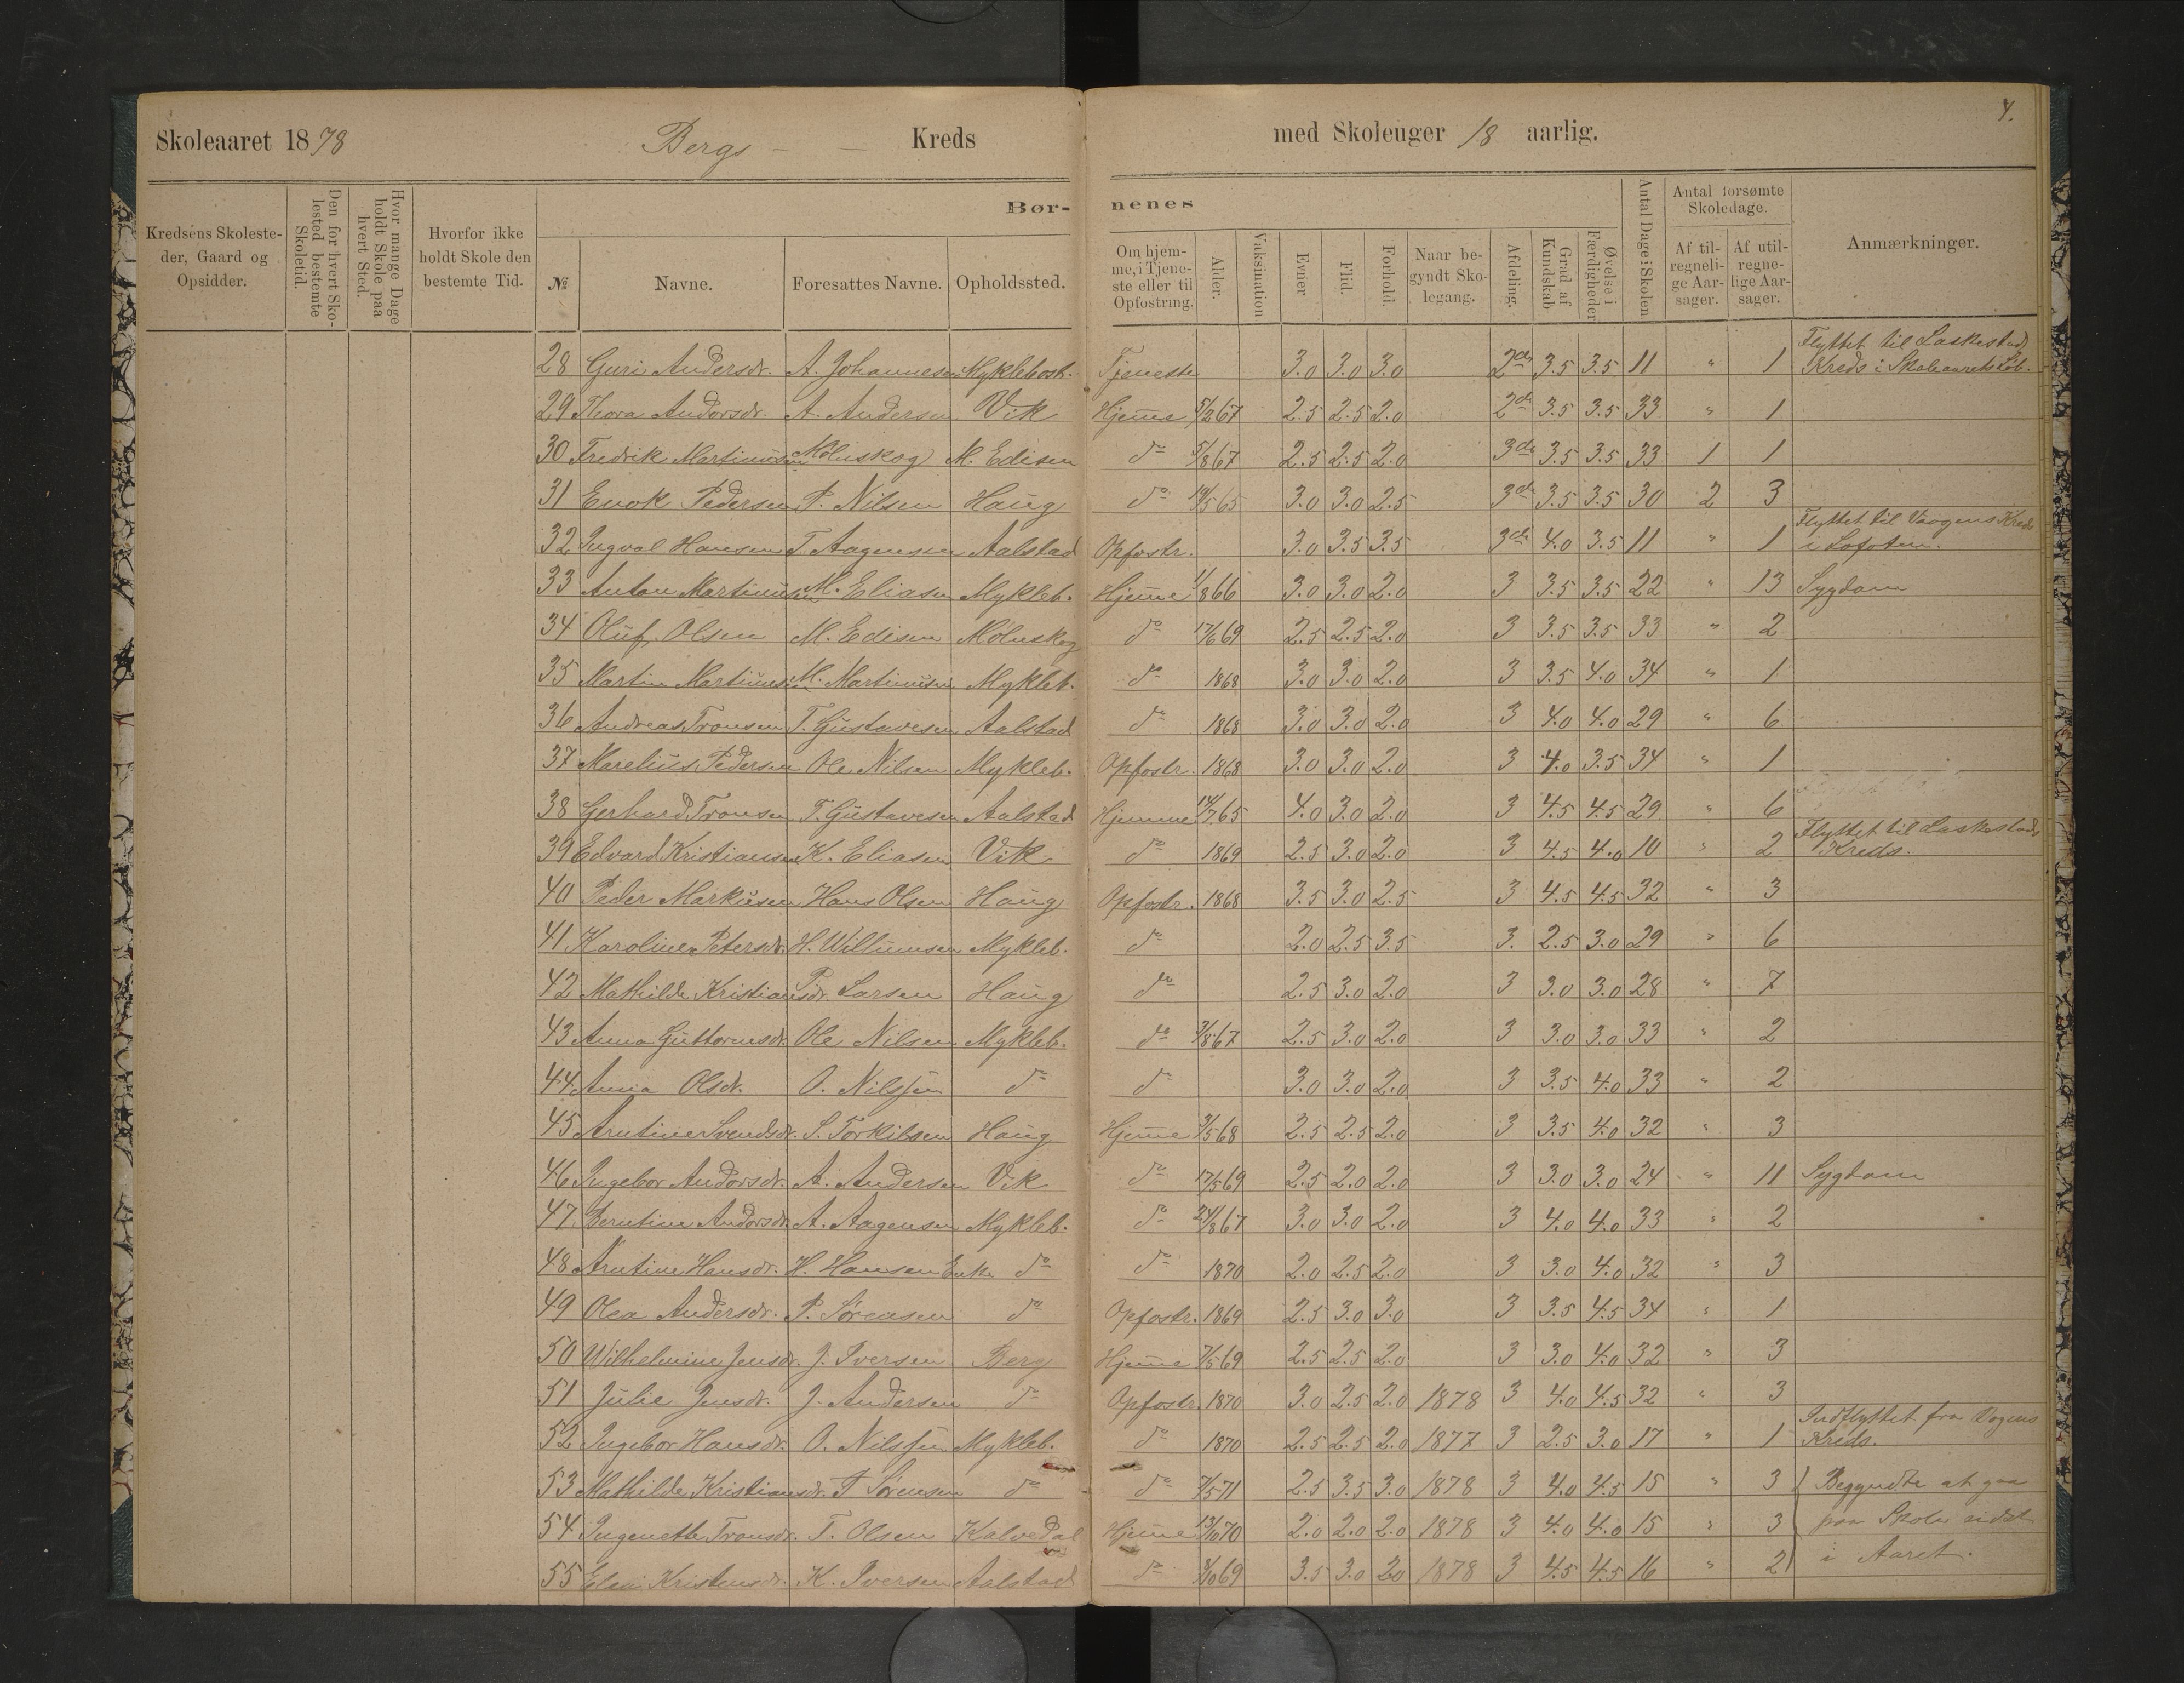 4.
Skoleaaret 1878 Bergs - — Kreds med Skoleuger 18 aarlig.
Kredsens Skolesteder, Gaard og Opsidder.
Den for hvert Skolested bestemte Skoletid.
Hvor mange Dage holdt Skole paa hvert Sted.
Hvorfor ikke holdt Skole den bestemte Tid.
Børnenes
№ Navne. Foresattes Navne. Opholdssted. Om hjemme, i Tjeneste eller til Opfostring. Alder. Vaksination Evner Flid. Forhold. Naar begyndt Skolegang. Afdeling. Grad af Kundskab Øvelse i Færdigheder Antal Dage i Skolen
Antal forsømte Skoledage. Af tilregnelige Aarsager. Af utilregnelige Aarsager. Anmærkninger.
28 Guri Andersdr. A. Johannesen Myklebost. Tjeneste 3.0 3.0 3.0 2de 3.5 3.5 11 " 1 Flyttet til Laskestad Kreds i Skoleaarets Løb.
29 Thora Andorsdr. A. Andersen Vik Hjemme 5/2 67 2.5 2.5 2.0 2de 3.5 3.5 33 " 1
30 Fredrik Martinusen Mølnskog M. Edisen do 5/8 67 2.5 2.5 2.0 3de 3.5 3.5 33 1 1
31 Enok Pedersen P. Nilsen Haug do 19/5 65 3.0 3.0 2.5 3de 3.5 3.5 30 2 3
32 Ingval Hansen T. Aagensen Aalstad Opfostr. 3.0 3.5 3.5 3de 4.0 3.5 11 " 1 Flyttet til Vaagens Kreds i Lofoten.
33 Anton Martinusen M. Eliasen Mykleb. Hjemme 1/8 66 3.0 3.0 2.0 3 3.5 3.5 22 " 13 Sygdom
34 Oluf Olsen M. Edisen Mølnskog do 17/6 69 2.5 2.5 2.0 3 3.5 3.5 33 " 2
35 Martin Martinusen M. Martinusen Mykleb. do 1868 3.0 3.0 2.0 3 3.5 4.0 34 " 1
36 Andreas Tronsen T. Gustavesen Aalstad do 1868 3.0 3.0 2.0 3 4.0 4.0 29 " 6
37 Marelius Pedersen Ole Nilsen Mykleb. Opfostr. 1868 3.0 3.0 2.0 3 4.0 3.5 34 " 1
38 Gerhard Tronsen T. Gustavesen Aalstad Hjemme 14/7 65 4.0 3.0 2.0 3 4.5 4.5 29 " 6
39 Edvard Kristiansen K. Eliasen Vik do 1869 2.5 3.0 2.0 3 4.5 4.0 10 " 2 Flyttet til Laskestads Kreds.
40 Peder Markusen Hans Olsen Haug Opfostr. 1868 3.5 3.0 2.5 3 4.5 4.5 32 " 3
41 Karoline Petersdr. H. Willumsen Mykleb. do 2.0 2.5 3.5 3. 2.5 3.0 29 " 6
42 Mathilde Kristiansdr. P. Larsen Haug do 2.5 3.0 2.0 3 3.0 3.0 28 " 7
43 Anna Guttormsdr. Ole Nilsen Mykleb. do 3/8 67 2.5 3.0 2.0 3 3.0 3.0 33 " 2
44 Anna Olsdr. O. Nilssen do do 3.0 3.0 2.0 3 3.5 4.0 33 " 2
45 Arntine Svendsdr. S. Torkilsen Haug Hjemme 3/5 68 2.5 2.5 2.0 3 3.5 4.0 32 " 3
46 Ingebor Andorsdr. A. Andersen Vik do 17/5 69 2.5 2.0 2.0 3 3.0 3.0 24 " 11 Sygdom
47 Berntine Andorsdr. A. Aagensen Mykleb. do 24/8 67 3.0 3.0 2.0 3 4.0 4.0 33 " 2
48 Arntine Hansdr. H. Hansen Enke do do 1870 2.0 2.5 2.0 3 3.0 4.0 32 " 3
49 Olea Andersdr. P. Sørensen do Opfostr. 1869 2.5 3.0 3.0 3 3.5 4.5 34 " 1
50 Wilhelmine Jensdr. J. Iversen Berg Hjemme 7/5 69 2.5 2.5 2.0 3 3.0 4.0 32 " 3
51 Julie Jensdr. J. Andersen do Opfostr. 1870 3.0 2.5 2.0 1878 3 4.0 4.5 32 " 3
52 Ingebor Hansdr. O. Nilssen Mykleb. do 1870 2.5 2.5 2.0 1877 3 2.5 3.0 17 " 1 Indflyttet fra Vogens Kreds.
53 Mathilde Kristiansdr. P Sørensen do do 7/5 71 2.5 3.5 3.0 1878 3 4.0 4.5 15 " 3 Begyndte at gaa
54 Ingenette Tronsdr. T. Olsen Kalvedal Hjemme 13/10 70 2.0 2.0 2.0 1878 3 4.0 4.0 15 " 3 paa Skole sidst
55 Elea Kristensdr. K. Iversen Aalstad do 8/10 69 3.5 3.0 2.0 1878 3 4.5 4.5 16 " 2 i Aaret.